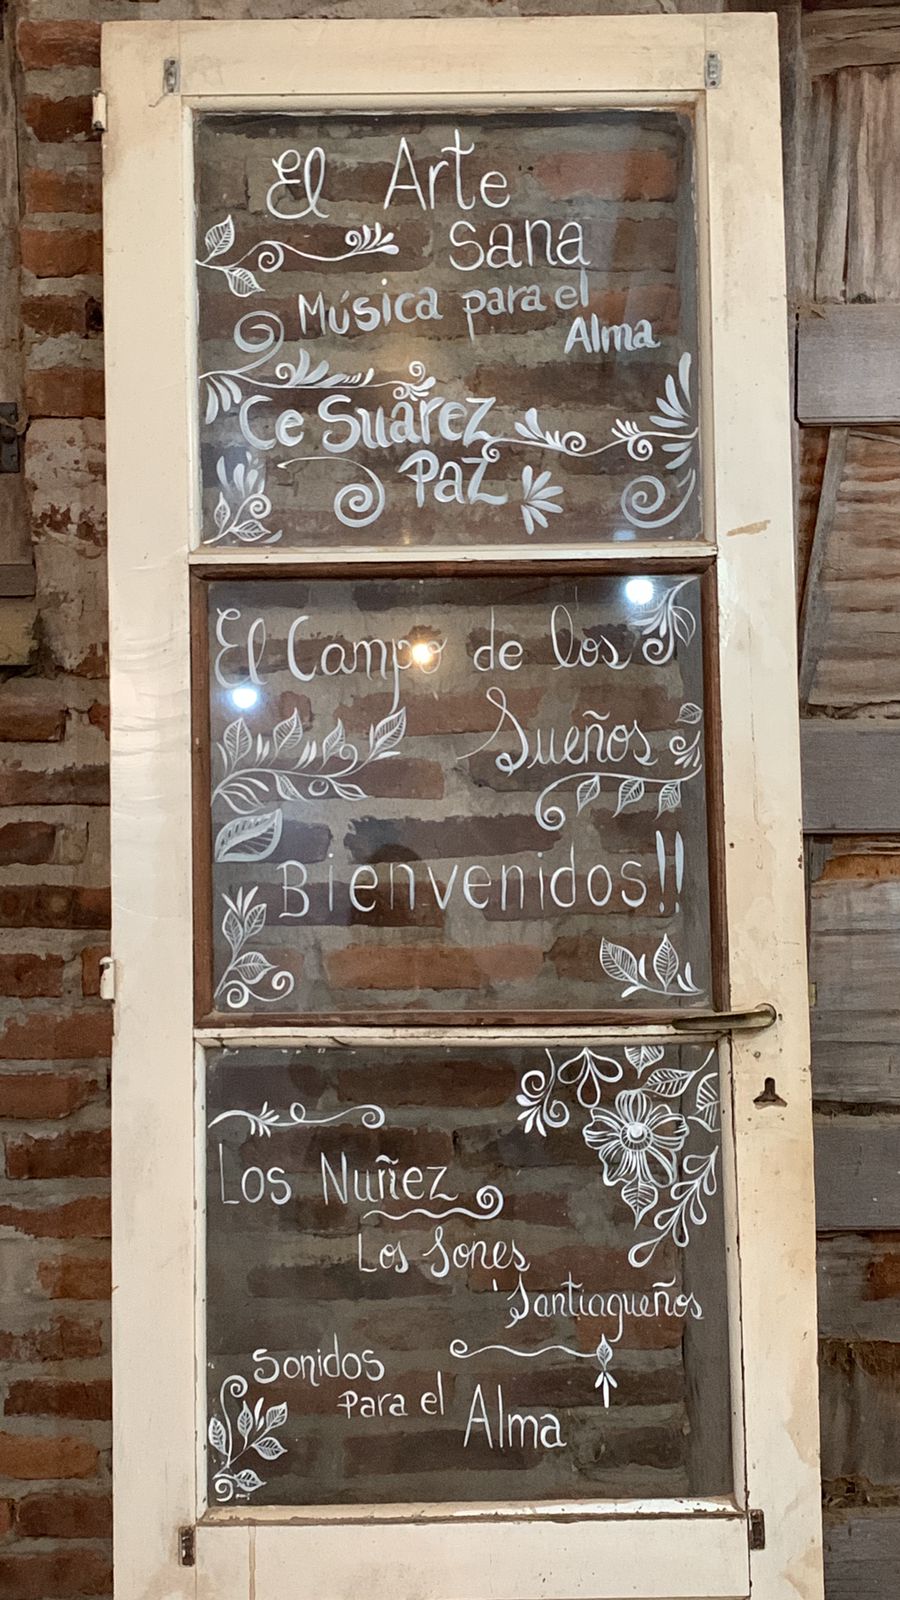 El Arte
Sana
Música para el
Alma
Ce Suárez
Paz
El Campo de los
Sueños
Bienvenidos!!
Los Nuñez
Los Sones
Santiagueños
Sonidos
Para el
Alma